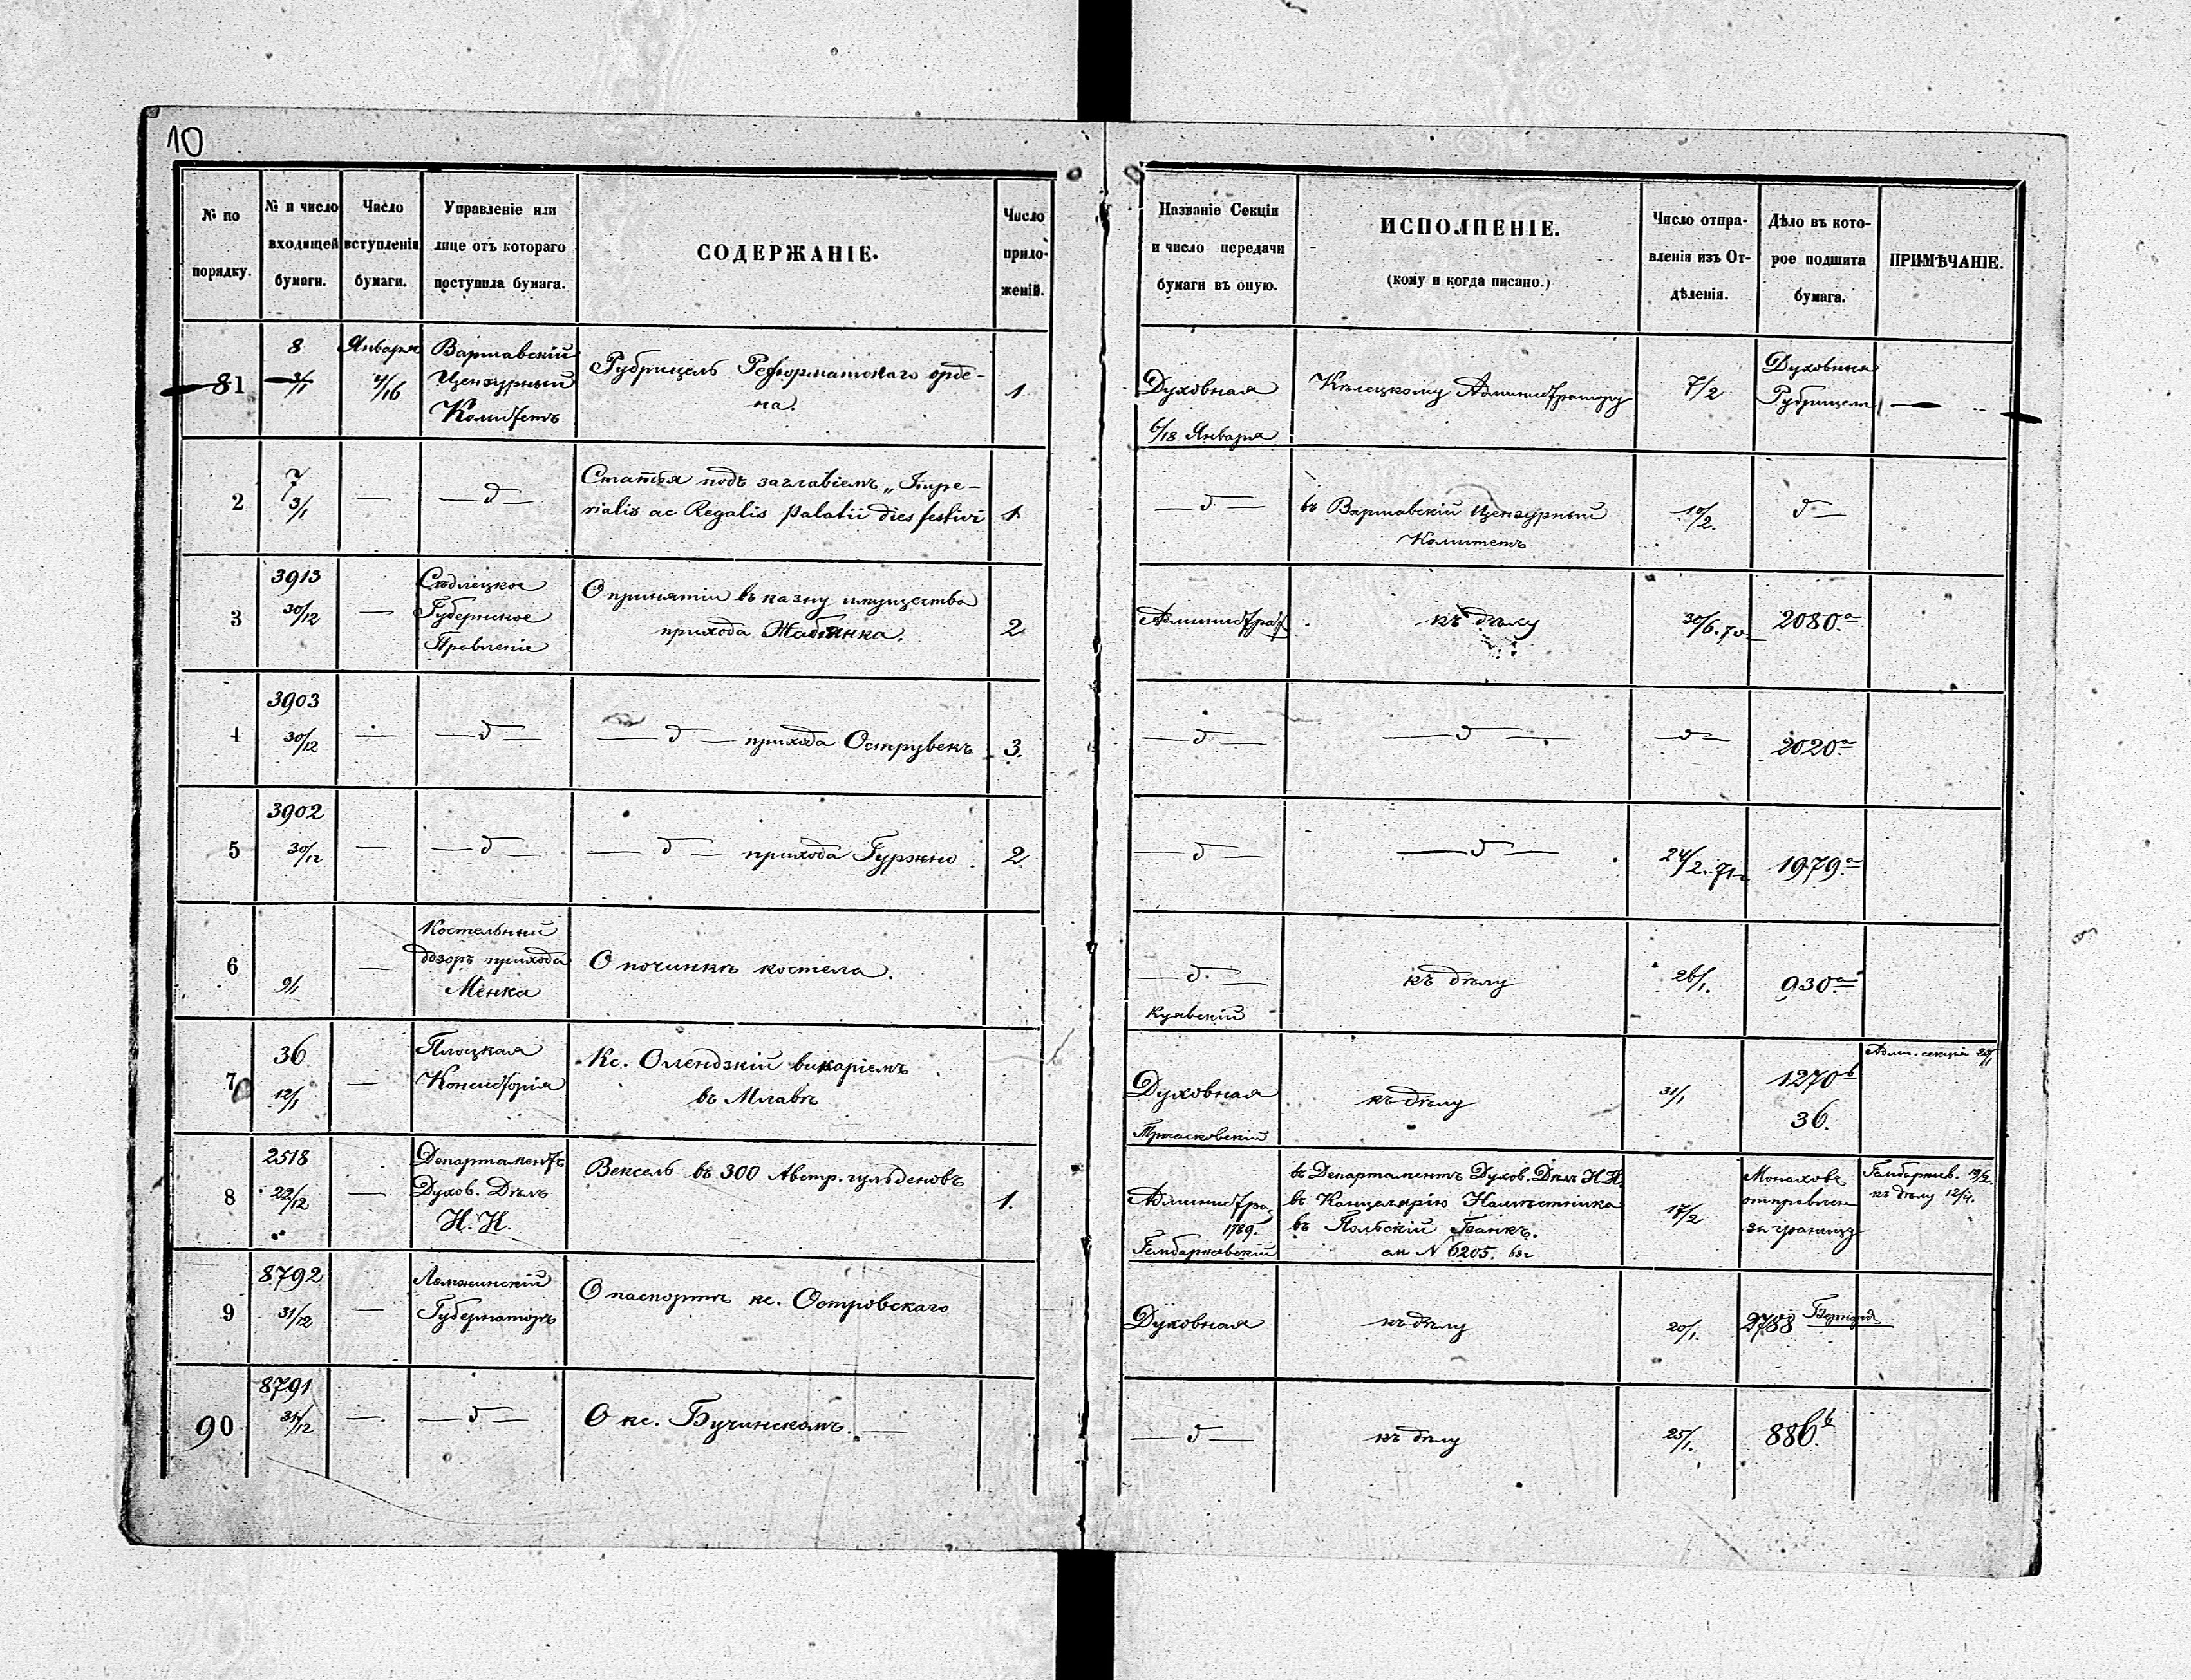 10
№ по порядку.
№ и число входящей бумаги.
Число вступленія бумаги.
Управленіе или лице отъ котораго поступила бумага.
СОДЕРЖАНІЕ.
Число приложеній.
Названіе Секціи и число передачи бумаги въ оную.
ИСПОЛНЕНІЕ.
(кому и когда писано.)
Число отправленія изъ Отдѣленія.
Дѣло въ которое подшита бумага.
ПРИМѢЧАНІЕ.
81
8
3/1
Января
4/16
Варшавскій
Цензурный
Комитетъ
Рубрицель Реформатскаго орде-
на.
1
Духовная
6/18 Января
Кѣлецкому Администратору
7/2
Духовная
Рубрицели
—
2
7
3/1
—
— д —
Статья подъ заглавіемъ „Impe-
rialis ac Regalis Palatii dies festivi
1
— д —
въ Варшавскій Цензурный
Комитетъ
10/2.
д —
3
3913
30/12
—
Сѣдлецкое
Губернское
Правленіе
О принятіи въ казну имущества
прихода Жабянка.
2
Администрат.
къ дѣлу
30/6.70
2080 а
4
3903
30/12
—
— д —
— д — прихода Острувекъ
3.
— д —
— д —
— д —
2020 а
5
3902
30/12
—
— д —
— д — прихода Гуржно.
2.
— д —
— д —
24/2.71
1979 а
6
9/1
—
Костельный
дозоръ прихода
Менка
О починкѣ костела.
— д —
Куявскій
къ дѣлу
26/1.
930 а
7
36
12/1
—
Плоцкая
Консисторія
Кс. Олендзкій викаріемъ
въ Млавѣ
Духовная
къ дѣлу
31/1
1270 б
36.
Адми. секція
8
2518
22/12
—
Департаментъ
Духов. Дѣлъ
И. И.
Вексель въ 300 Австр. гульденовъ
1.
Администра
1789.
Гембаржевскій
въ Департаментъ Духов. Дѣлъ И. И.
въ Канцелярію Намѣстника
въ Польскій Банкъ.
ом № 6205. 68г
17/2
Монахове
отправлен
за границу
Гембаржев. 19/2.
къ дѣлу 12/4.
9
8792
31/12
—
Ломжинскій
Губернаторъ
О паспортѣ кс. Островскаго
Духовная
къ дѣлу
20/1.
2788
90
8791
31/12
—
— д —
О кс. Бучинскомъ. —
— д —
къ дѣлу
25/1.
886. б